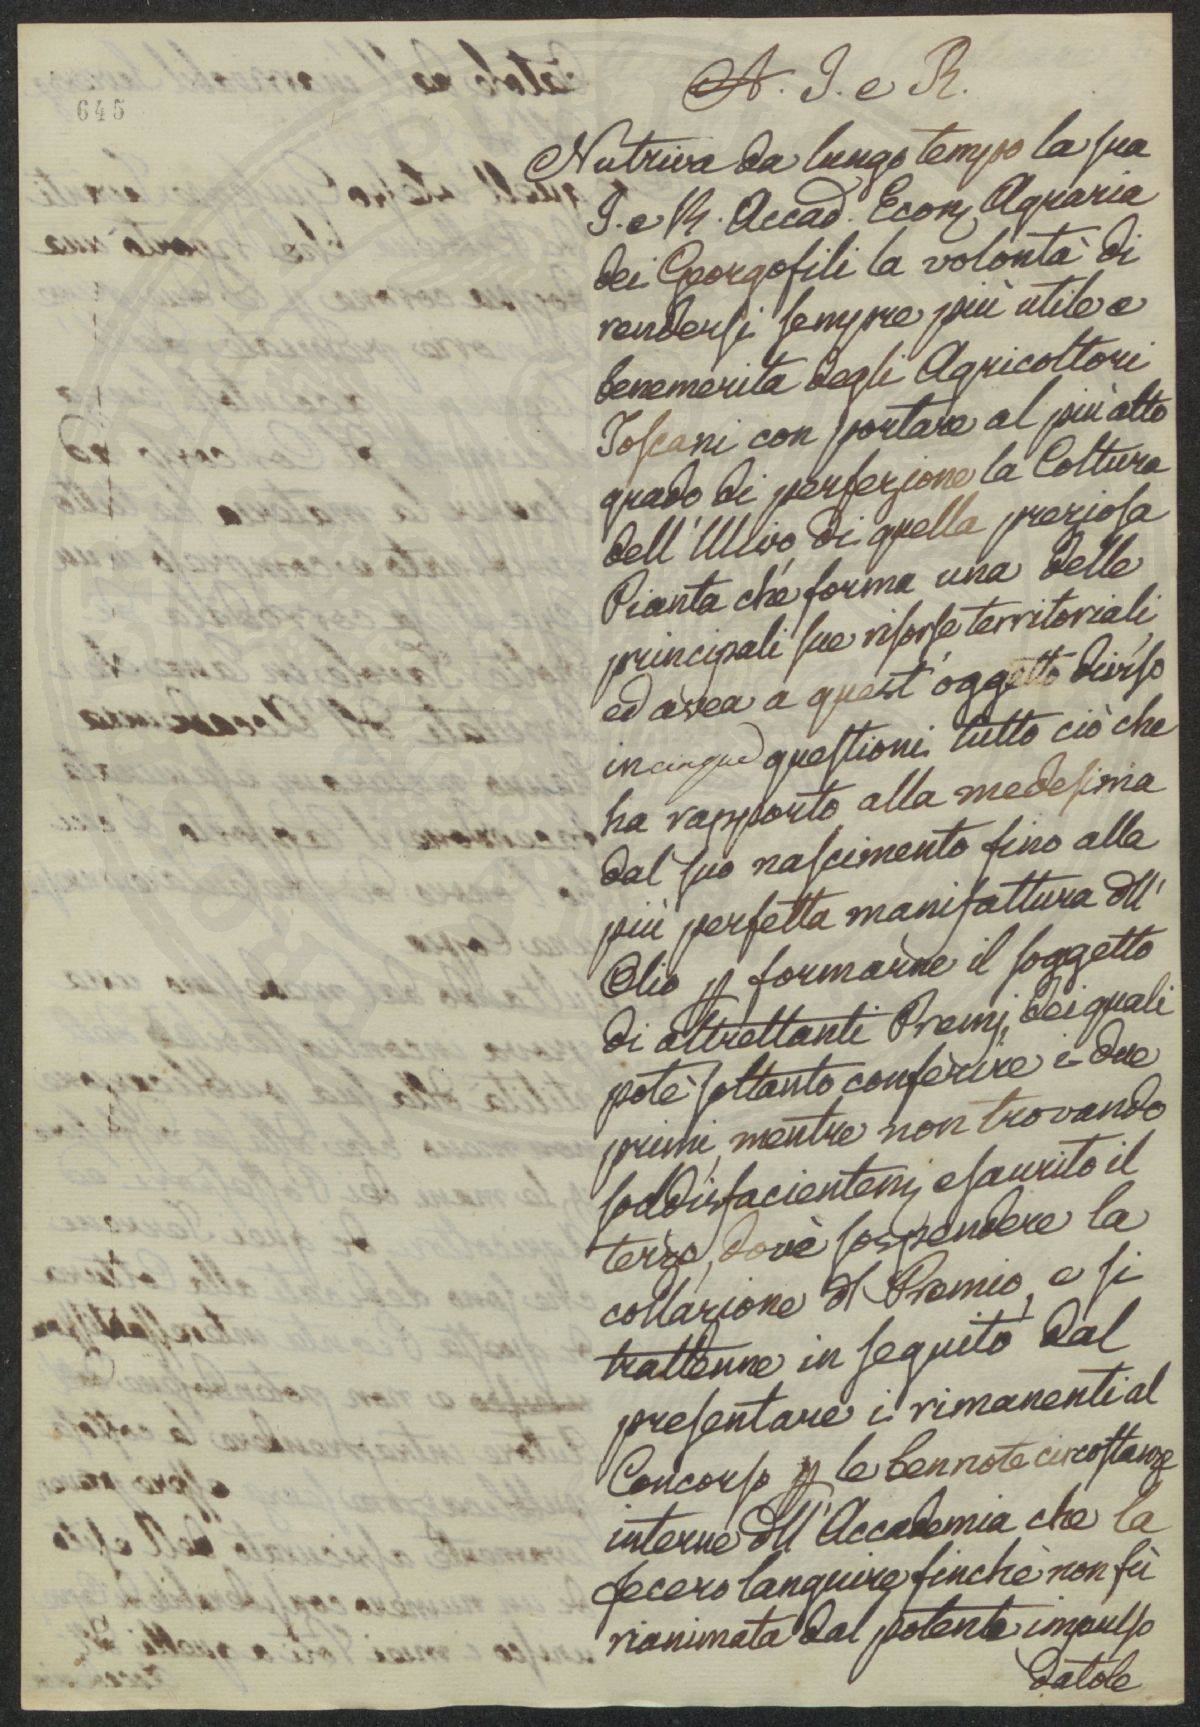 645
A. I. e R.
Nutriva da lungo tempo la sua
I. e R. Accad. Econ. Agraria
dei Georgofili la volontà di
rendersi sempre più utile e
benemerita degli Agricoltori
Toscani con portare al più alto
grado di perfezione la Coltura
dell'Ulivo di quella preziosa
Pianta che forma una delle
principali sue risorse territoriali
ed avea a quest'oggetto diviso
in cinque questioni tutto ciò che
ha rapporto alla medesima
dal suo nascimento fino alla
più perfetta manifattura dll'
Olio p formarne il soggetto
di altrettanti Premj, dei quali
potè soltanto conferire i due
primi, mentre non trovando
soddisfacientem esaurito il
terzo, dovè sospendere la
collazione dl Premio, e si
trattenne in seguito dal
presentare i rimanenti al
Concorso p le ben note circostanze
interne dll'Accademia che la
fecero languire finchè non fù
rianimata dal potente impulso
datole